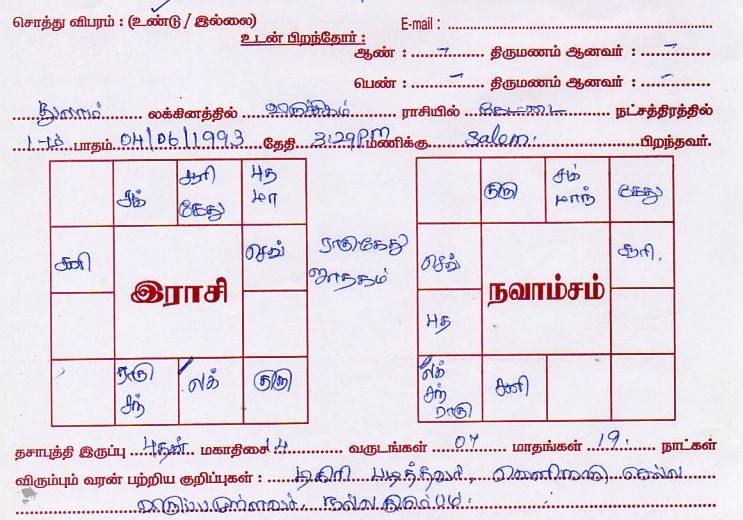 சொத்து விபரம் : (உண்டு / இல்லை) E-mail :
உடன் பிறந்தோர் :
ஆண் : – திருமணம் ஆனவர் : –
பெண் : – திருமணம் ஆனவர் : –
துலாம் லக்கினத்தில் விருச்சிகம் ராசியில் கேட்டை நட்சத்திரத்தில்
1-ம் பாதம் 04/06/1993 தேதி 3:29pm மணிக்கு Salem. பிறந்தவர்.
சுக் சூரி கேது புத மா
சனி செவ்
இராசி
ராகு சந் லக் குரு
ராகுகேது ஜாதகம்
குரு சுக் மாந் கேது
செவ் சூரி.
நவாம்சம்
புத
லக் சந் ராகு சனி
தசாபுத்தி இருப்பு புதன் மகாதிசை 14 வருடங்கள் 07 மாதங்கள் 19 நாட்கள்
விரும்பும் வரன் பற்றிய குறிப்புகள் : டிகிரி படித்தவர், செல்ல
விருப்பமுள்ளவர், நல்ல